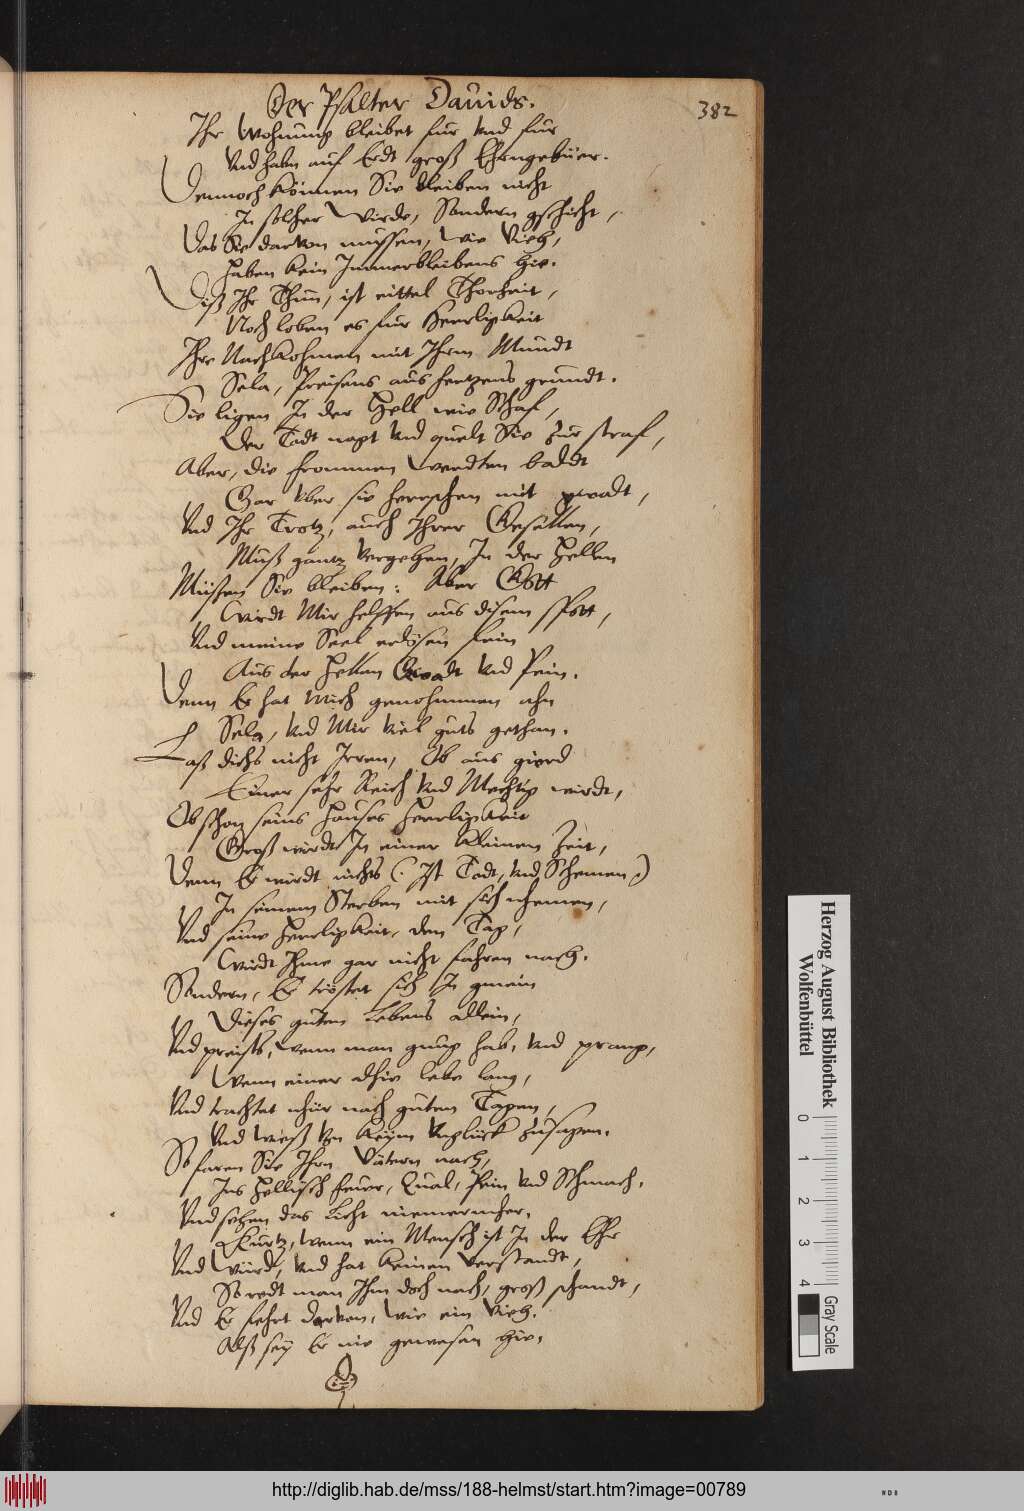 Der Psalter Dauids.
382
Ihr Wohnung bleibet fur vnd fur
Vnd habn auf Erdt groß Ehrngebüer.
Dennoch Können Sie bleiben nicht
In solcher Wirde, Sondern gschicht,
Das Sie daruon mussen, wie Vieh,
Haben kein Immerbleibens hie.
Diß Ihr Thun, ist eittel Thorheit,
Noch loben es fur Herrligkeit
Ihre Nachkohmen mit Ihrm Mundt
Sela, Preisens aus hertzens grundt.
Sie ligen In der Hell wie Schaf,
Der Todt nagt vnd quelt Sie zur straf,
Aber, die frommen werdten baldt
Gar vber sie herrschen mit gwadt,
Vnd Ihr Trotz, auch Ihrer Gesellen,
Muß gantz vergehen, In der Hellen
Müssen Sie bleiben: Aber Gott
Wirdt Mir helffen aus disem spott,
Vnd meine Seel erlösen fein
Aus der Hellen Gwadt vnd Pein.
Denn Er hat mich genohmmen ahn
Sela, vnd Mir viel guts gethan.
Laß dichs nicht Irren, Ob aus gierd
Einer sehr Reich vnd Mechtig wirdt,
Ob schon seins Hauses Herrligkeit
Groß wirdt In einer kleinen Zeit,
Denn Er wirdt nichts (: Ist Todt, vnd Schemen :)
In seinem Sterben mit sich nhemen,
Vnd seine Herrligkeit, den Tag,
Wirdt Ihme gar nicht fahren nach.
Sondern, Er tröstet sich In gmein
Dieses guten Lebens allein,
Vnd preists, wenn man gnug hab, vnd prang,
Wenn einer alhie lebe lang,
Vnd trachtet nhur nach guten Tagen,
Vnd wieß von keym vnglück zusagen.
So faren Sie Ihrn Vätern nach,
Ins Hellisch feuer, Qual, Pein vnd Schmach,
Vnd sehen das Licht niemermher.
Kurtz, wenn ein Mensch ist In der Ehr
Vnd Würd, vnd hat keinen verstandt,
So redt man Ihm doch nach, groß schandt,
Vnd Er fehrt daruon, wie ein Vieh.
Alß sey Er nie gewesen hie.
Herzog August Bibliothek
Wolfenbüttel
0 1 2 3 4
Gray Scale
http://diglib.hab.de/mss/188-helmst/start.htm?image=00789